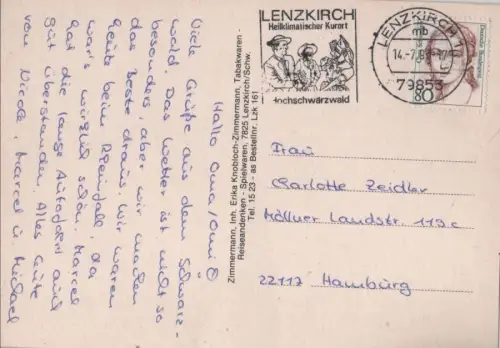 Hallo Oma/Omi
Viele Grüße aus dem Schwarz-
wald. Das Wetter ist nicht so
besonders, aber wir machen
das Beste draus. Wir waren
heute beim Rheinfall, da
war's wirklich schön. Marcel
hat die lange Autofahrt auch
gut überstanden. Alles Gute
von Nicole, Marcel u. Michael
Zimmermann, Inh. Erika Knobloch-Zimmermann, Tabakwaren -
Reiseandenken - Spielwaren, 7825 Lenzkirch/Schw.
Tel. 15 23 - as Bestellnr. Lzk 161
LENZKIRCH
Heilklimatischer Kurort
Hochschwarzwald
LENZKIRCH 1
mb
79853
80
Frau
Charlotte Zeidler
Möllner Landstr. 119c
22117 Hamburg